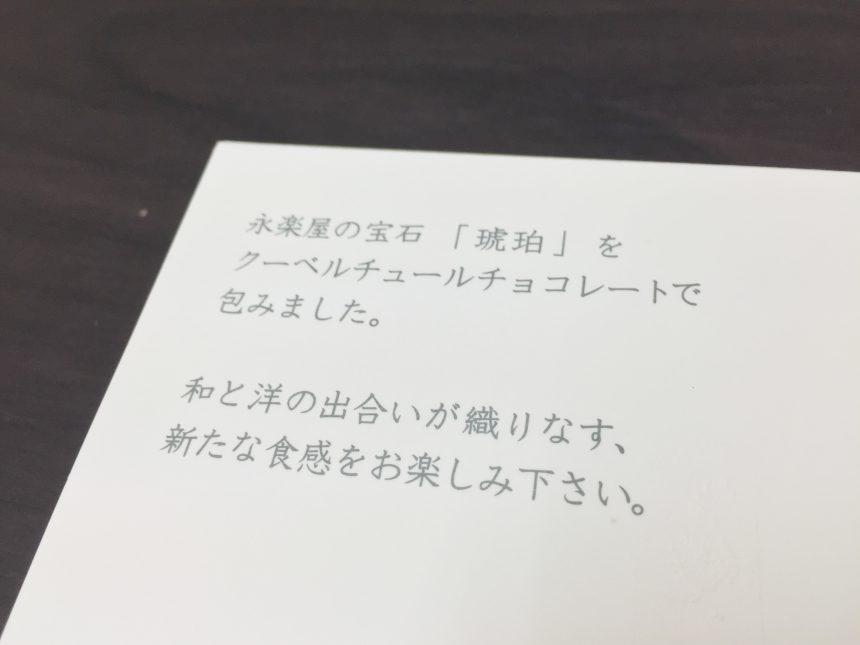 永楽屋の宝石「琥珀」を
クーベルチュールチョコレートで
包みました。
和と洋の出合いが織りなす、
新たな食感をお楽しみ下さい。